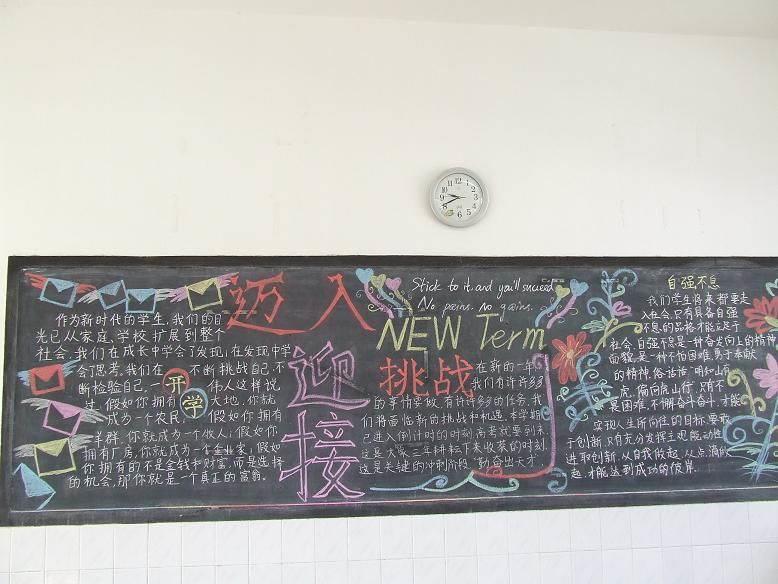 迈入
NEW Term
迎接
挑战
Stick to it, and you'll succeed
No pains. No gains.
开学
作为新时代的学生,我们的目
光已从家庭、学校扩展到整个
社会,我们在成长中学会了发现,在发现中学
会了思考,我们在不断挑战自己,不
断检验自己,一 伟人这样说
过,假如你拥有 大地,你就
成为一个农民, 假如你拥有
羊群,你就成为一个牧人;假如你
拥有厂房,你就成为一个企业家;假如
你拥有的不是金钱和财富,而是选择
的机会,那你就是一个真正的富翁。
在新的一年
我们有许许多多
的事情要做,有许许多的任务,我
们将面临新的挑战和机遇,本学期
已进入倒计时的时刻,高考就要到来
这是大家三年耕耘下来收获的时刻
这是关键的冲刺阶段"勤奋出天才"
自强不息
我们学生将来都要走
入社会,只有具备自强
不息的品格才能立足于
社会,自强不息是一种奋发向上的精神
面貌,是一种不怕困难,勇于奉献
的精神,俗话话"明知山有
虎,偏向虎山行",只有不
畏困难,不懈奋斗奋斗,才能
实现人生所向往的目标,要敢
于创新,只有充分发挥主观能动性
进取创新,从自我做起,从点滴做
起,才能达到成功的彼岸。